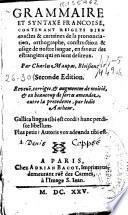 GRAMMAIRE
ET SYNTAXE FRANÇOISE,
CONTENANT REIGLES BIEN
exactes & certaines de la prononcia-
tion, orthographe, construction &
usage de nostre langue, en faveur des
estrangiers qui en sont desireux.
Par Charles Maupas, Bloisien.
Seconde Edition.
Reveuë, corrigée, & augmentée de moitié,
& en beaucoup de sorte amendée,
outre la precedente, par ledit
Autheur.
Gallica lingua tibi est condi: hunc perdi-
ce libellum:
Plus petis? Autoris vox adeunda tibi est.
A PARIS,
Chez ADRIAN BACOT, Imprimeur
demeurant ruë des Carmes,
à l'Image S. Iean.
M. DC. XXV.